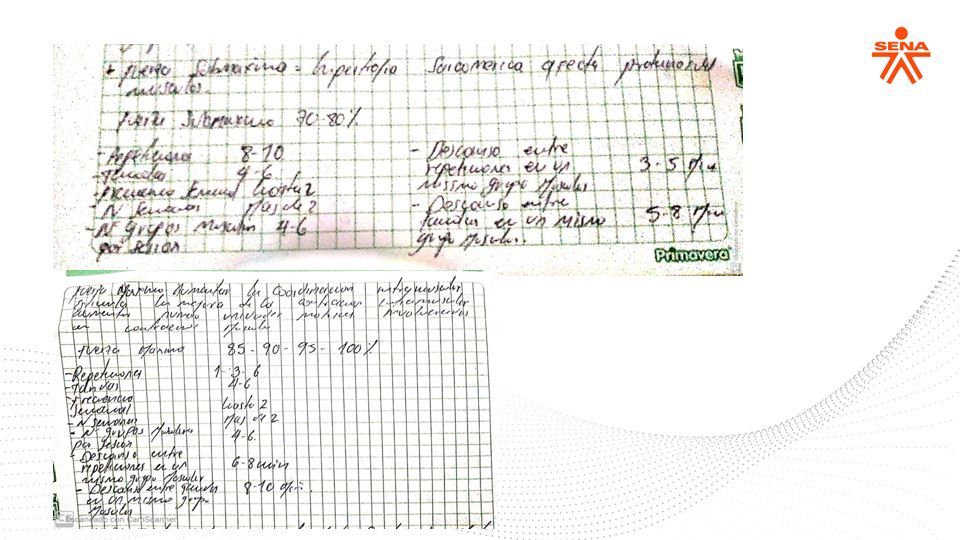 SENA
+ fuerza Submaxima = hipertrofia Sarcomerica afecta proteinas del
musculos.
fuerza Submaxima 70-80%
- Repeticiones 8-10
- Tandas 4-6
- frecuencia semanal hasta 2
- N semanas Mas de 2
- N° grupos muscular 4-6
por sesion
- Descanso entre
repeticiones en un 3-5 min
mismo grupo Muscular
- Descanso entre
tandas en un mismo 5-8 min
grupo Muscular.
Primavera
fuerza Maxima Aumentar la Coordinacion intramuscular
la mejora de la contraccion intermuscular
aumentar numero unidades motrices involucradas
en contraccion Muscular
fuerza Maxima 85-90-95-100%
- Repeticiones 1-3-6
- Tandas 4-6
- frecuencia
Semanal hasta 2
- N semanas Mas de 2
- N° grupos Musculares 4-6
por sesion
- Descanso entre
repeticiones en un 6-8 min
mismo grupo Muscular
- Descanso entre tandas 8-10 min.
en un mismo grupo
Muscular
Escaneado con CamScanner